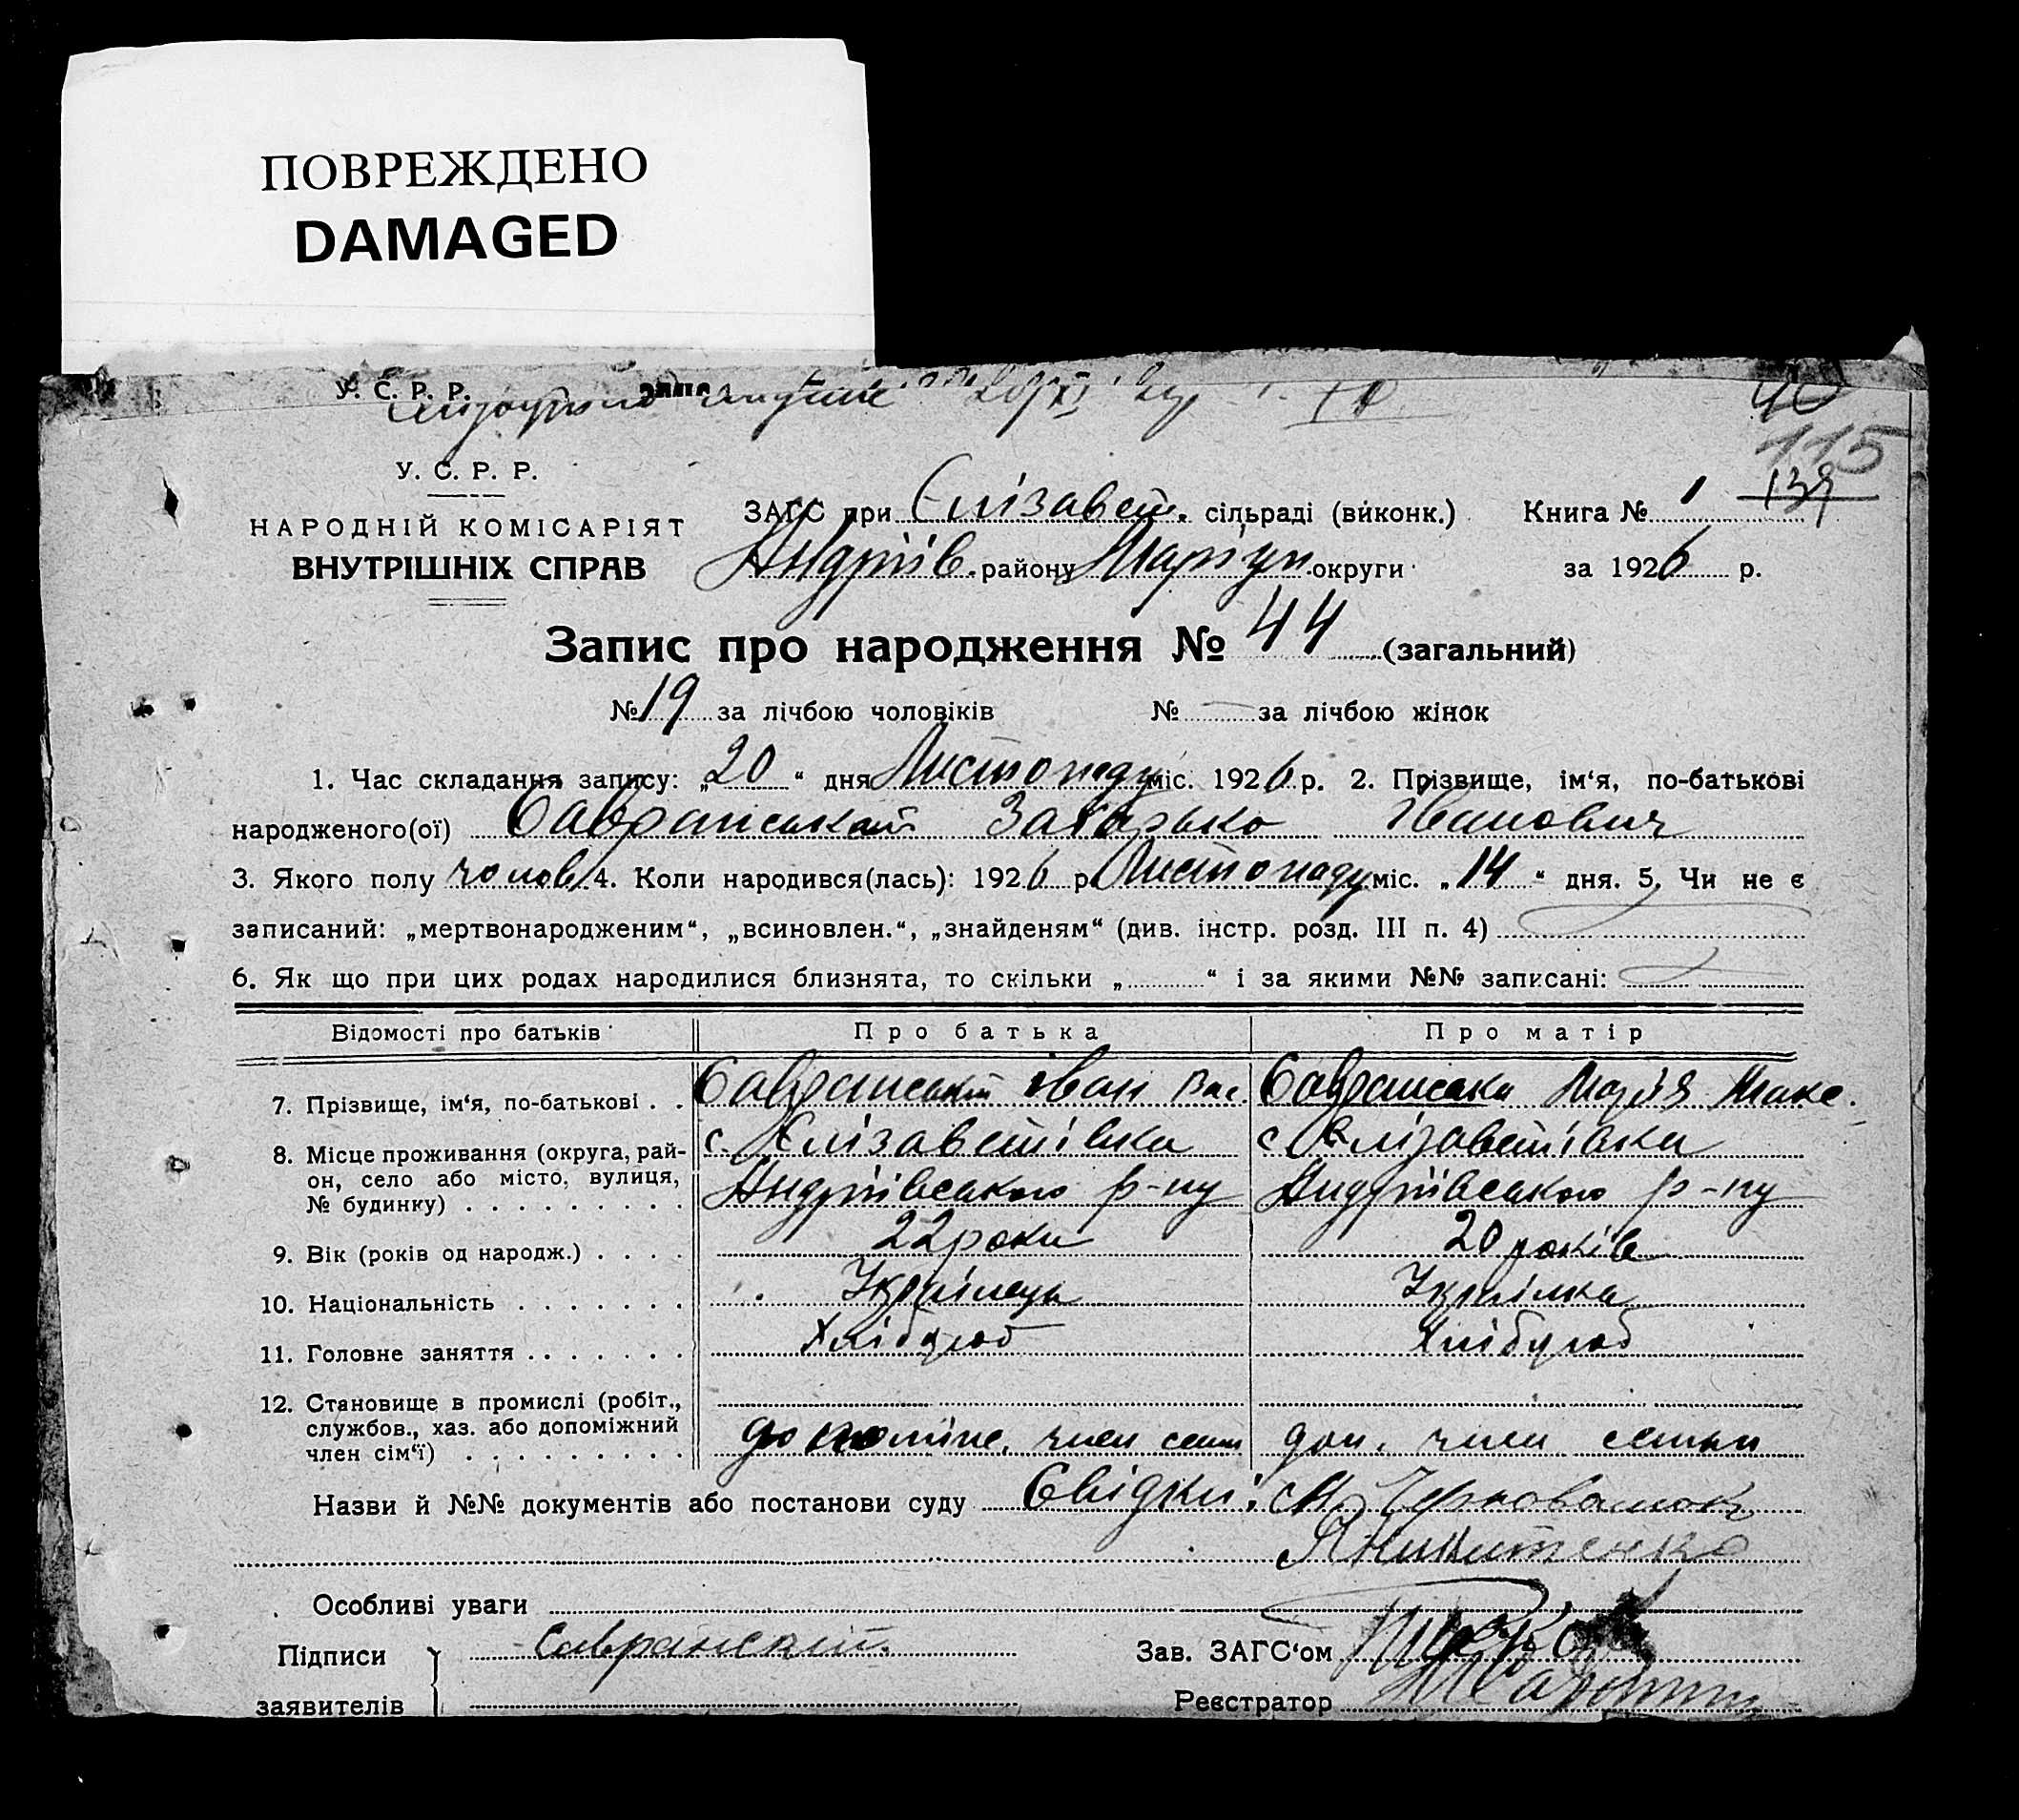 ПОВРЕЖДЕНО
DAMAGED
У. С. Р. Р.
40
115
У. С. Р. Р.
139
ЗАГС при Єлізавет. сільраді (виконк.) Книга № 1
НАРОДНІЙ КОМІСАРІЯТ
ВНУТРІШНІХ СПРАВ
Андріїв. району Маріуп. округи за 1926 р.
Запис про народження № 44 (загальний)
№ 19 за лічбою чоловіків № — за лічбою жінок
1. Час складання запису: „20“ дня Листопаду міс. 1926 р. 2. Прізвище, ім‘я, по-батькові
народженого(ої) Савранський Захарько Іванович
3. Якого полу чолов. 4. Коли народився(лась): 1926 р. Листопаду міс. „14“ дня. 5. Чи не є
записаний: „мертвонародженим“, „всиновлен.“, „знайденям“ (див. інстр. розд. III п. 4)
6. Як що при цих родах народилися близнята, то скільки „ “ і за якими №№ записані:
Відомості про батьків Про батька Про матір
7. Прізвище, ім‘я, по-батькові . . Савранський Іван Вас. Савранська Марія Макс.
8. Місце проживання (округа, рай- с. Єлізаветівка с. Єлізаветівка
он, село або місто, вулиця,
№ будинку) . . . . . . . . . Андріївського р-ну Андріївського р-ну
9. Вік (років од народж.) . . . . 22 роки 20 років
10. Національність . . . . . . . Українець Українка
11. Головне заняття . . . . . . . Хлібороб Хлібороб
12. Становище в промислі (робіт.,
службов., хаз. або допоміжний
член сім‘ї) . . . . . . . . . член семи доп. член семьи
Назви й №№ документів або постанови суду Свідки:
Никитенко
Особливі уваги
Підписи Савранский Зав. ЗАГС‘ом
заявителів Реєстратор